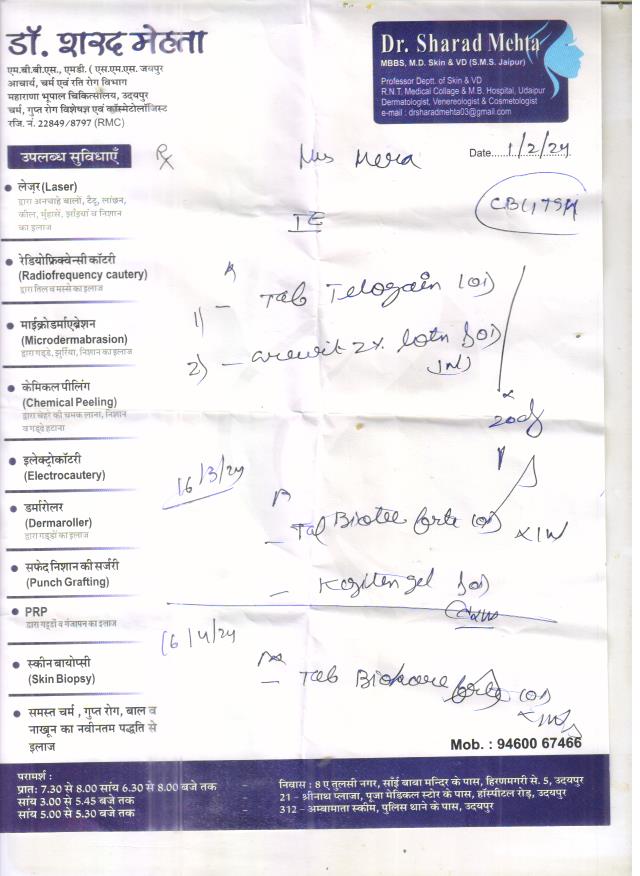 डॉ. शरद मेहता
एम.बी.बी.एस., एमडी. ( एस.एम.एस. जयपुर
आचार्य, चर्म एवं रति रोग विभाग
महाराणा भूपाल चिकित्सालय, उदयपुर
चर्म, गुप्त रोग विशेषज्ञ एवं कॉस्मेटोलॉजिस्ट
रजि. नं. 22849/8797 (RMC)
Dr. Sharad Mehta
MBBS, M.D. Skin & VD (S.M.S. Jaipur)
Professor Deptt. of Skin & VD
R.N.T. Medical Collage & M.B. Hospital, Udaipur
Dermatologist, Venereologist & Cosmetologist
e-mail : drsharadmehta03@gmail.com
उपलब्ध सुविधाएँ
Rx
Mrs Mera
Date.....1/2/24......
लेज़र (Laser)
द्वारा अनचाहे बालों, टैटू, लांछन,
कील, मुंहासे, झाइयां व निशान
का इलाज
TE
रेडियोफ्रिक्वेन्सी कॉटरी
(Radiofrequency cautery)
द्वारा तिल व मस्से का इलाज
1) - Tab Telogain (OD)
माईक्रोडर्माएब्रेशन
(Microdermabrasion)
द्वारा गड्डे, झुर्रिया, निशान का इलाज
2) - 2% lotn
केमिकल पीलिंग
(Chemical Peeling)
द्वारा चेहरे की चमक लाना, निशान
व गड्डे हटाना
20d
इलेक्ट्रोकॉटरी
(Electrocautery)
16/3/24
डर्मारोलर
(Dermaroller)
द्वारा गड्डों का इलाज
- Tab forte (OD)
सफेद निशान की सर्जरी
(Punch Grafting)
- gel
PRP
द्वारा गड्डों व गंजापन का इलाज
16/4/24
स्कीन बायोप्सी
(Skin Biopsy)
- Tab forte (OD)
समस्त चर्म , गुप्त रोग, बाल व
नाखून का नवीनतम पद्धति से
इलाज
Mob. : 94600 67466
परामर्श :
प्रात: 7.30 से 8.00 सांय 6.30 से 8.00 बजे तक
सांय 3.00 से 5.45 बजे तक
सांय 5.00 से 5.30 बजे तक
निवास : 8 ए तुलसी नगर, साँई बाबा मन्दिर के पास, हिरणमगरी से. 5, उदयपुर
21 - श्रीनाथ प्लाजा, पूजा मेडिकल स्टोर के पास, हॉस्पीटल रोड़, उदयपुर
312 - अम्बामाता स्कीम, पुलिस थाने के पास, उदयपुर